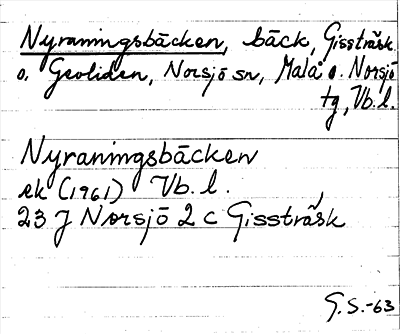 Nyraningsbäcken, bäck, Gissträsk
o. Geoliden, Norsjö sn, Malå o. Norsjö
tg, Vb. l.
Nyraningsbäcken
ek (1961) Vb. l.
23 J Norsjö 2 c Gissträsk
G. S. -63